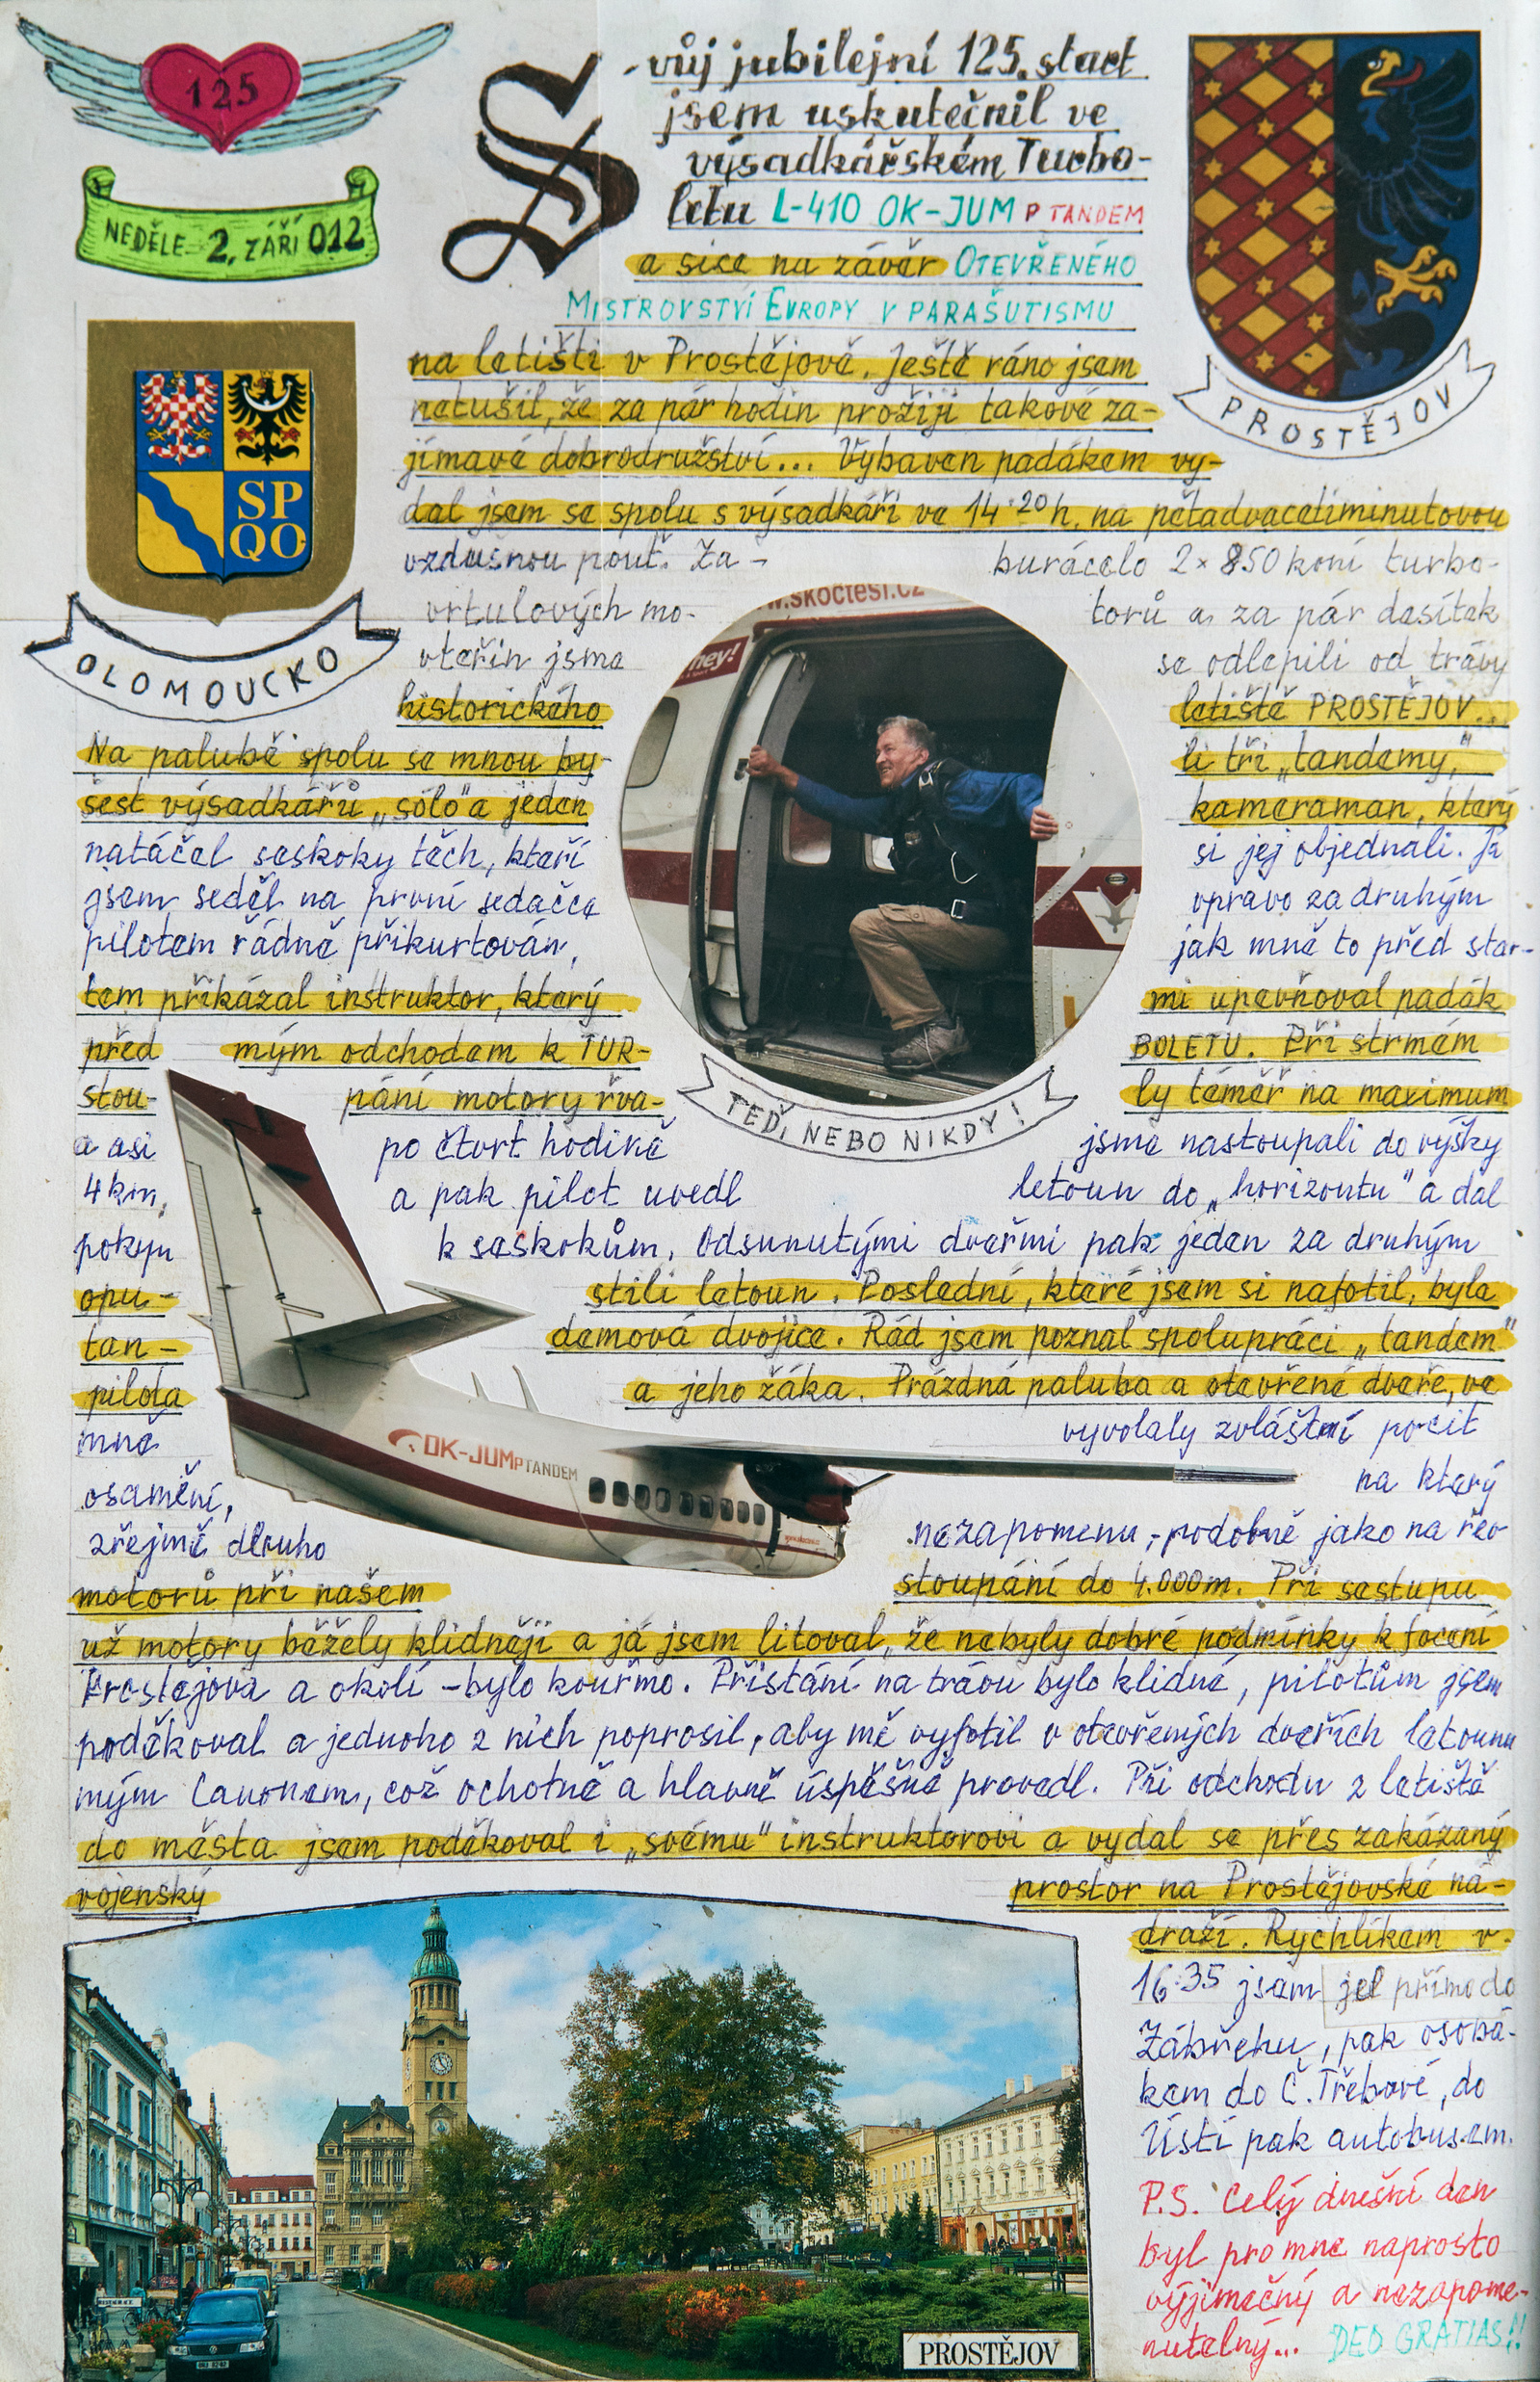 125
NEDĚLE 2. ZÁŘÍ 012
S-vůj jubilejní 125. start
jsem uskutečnil ve
výsadkářském Turbo-
letu L-410 OK-JUMP TANDEM
a sice na závěr OTEVŘENÉHO
MISTROVSTVÍ EVROPY V PARAŠUTISMU
na letišti v Prostějově. Ještě ráno jsem
netušil, že za pár hodin prožiji takové za-
jímavé dobrodružství... Vybaven padákem vy-
dal jsem se spolu s výsadkáři ve 14·20 h. na pětadvacetiminutovou
vzdušnou pouť. Za- burácelo 2×850 koní turbo-
vrtulových mo- torů a za pár desítek
vteřin jsme se odlepili od trávy
historického letiště PROSTĚJOV...
Na palubě spolu se mnou by- li tři „tandemy,"
šest výsadkářů „sólo" a jeden kameraman, který
natáčel seskoky těch, kteří si jej objednali. Já
jsem seděl na první sedačce vpravo za druhým
pilotem řádně přikurtován, jak mně to před star-
tem přikázal instruktor, který mi upevňoval padák
před mým odchodem k TUR- BOLETU. Při strmém
stou- pání motory řva- ly téměř na maximum
a asi po čtvrt hodině jsme nastoupali do výšky
4 km, a pak pilot uvedl letoun do „horizontu" a dal
pokyn k seskokům. Odsunutými dveřmi pak jeden za druhým
opu- stili letoun. Poslední, které jsem si nafotil, byla
tan- demová dvojice. Rád jsem poznal spolupráci „tandem"
pilota a jeho žáka. Prázdná paluba a otevřené dveře, ve
mne vyvolaly zvláštní pocit
osamění, na který
zřejmě dlouho nezapomenu, - podobně jako na řev
motorů při našem stoupání do 4.000 m. Při sestupu
už motory běžely klidněji a já jsem litoval, že nebyly dobré podmínky k focení
Prostějova a okolí - bylo kouřmo. Přistání na trávu bylo klidné, pilotům jsem
poděkoval a jednoho z nich poprosil, aby mě vyfotil v otevřených dveřích letounu
mým Canonem, což ochotně a hlavně úspěšně provedl. Při odchodu z letiště
do města jsem poděkoval i „svému" instruktorovi a vydal se přes zakázaný
vojenský prostor na Prostějovské ná-
draží. Rychlíkem v
16·35 jsem jel přímo do
Zábřehu, pak osobá-
kem do Č. Třebové, do
Ústí pak autobusem.
P.S. Celý dnešní den
byl pro mne naprosto
výjimečný a nezapome-
nutelný... DEO GRATIAS!!
PROSTĚJOV
SP
QO
OLOMOUCKO
www.skoctesi.cz
hey!
TEĎ, NEBO NIKDY!
OK-JUMP TANDEM
PROSTĚJOV